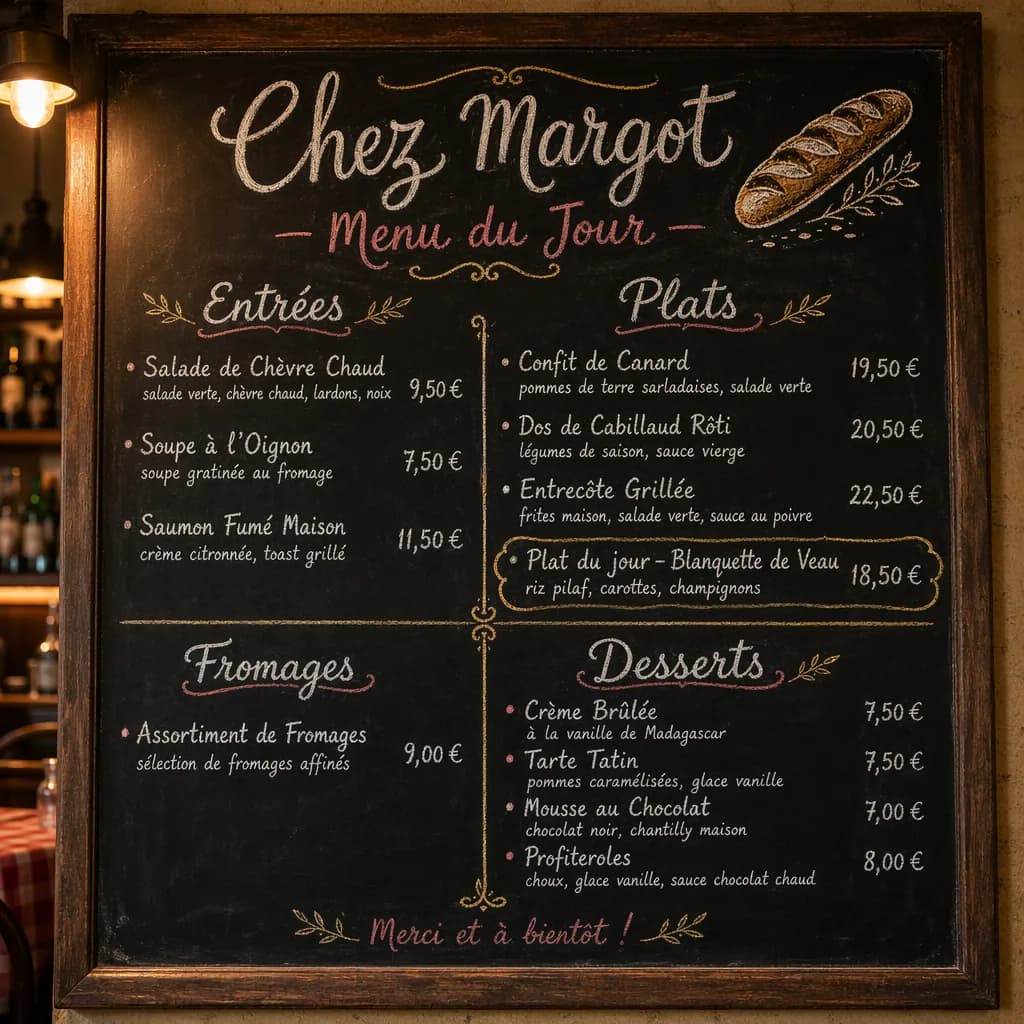 Chez Margot
— Menu du Jour —
Entrées
• Salade de Chèvre Chaud
salade verte, chèvre chaud, lardons, noix 9,50 €
• Soupe à l'Oignon
soupe gratinée au fromage 7,50 €
• Saumon Fumé Maison
crème citronnée, toast grillé 11,50 €
Plats
• Confit de Canard 19,50 €
pommes de terre sarladaises, salade verte
• Dos de Cabillaud Rôti 20,50 €
légumes de saison, sauce vierge
• Entrecôte Grillée 22,50 €
frites maison, salade verte, sauce au poivre
• Plat du jour – Blanquette de Veau 18,50 €
riz pilaf, carottes, champignons
Fromages
• Assortiment de Fromages
sélection de fromages affinés 9,00 €
Desserts
• Crème Brûlée 7,50 €
à la vanille de Madagascar
• Tarte Tatin 7,50 €
pommes caramélisées, glace vanille
• Mousse au Chocolat 7,00 €
chocolat noir, chantilly maison
• Profiteroles 8,00 €
choux, glace vanille, sauce chocolat chaud
Merci et à bientôt !